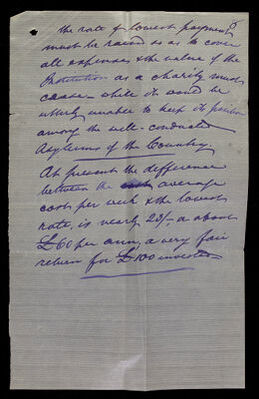 the rate of lowest payment
must be raised so as to cover
all expenses & the value of the
Institution as a charity must
cease – while it would be
utterly unable to keep its position
among the well-conducted
Asylums of the Country
At present the difference
between the average
cost per week & the lowest
rate, is nearly 23/- or about
£60 per ann, a very fair
return for £100 invested –